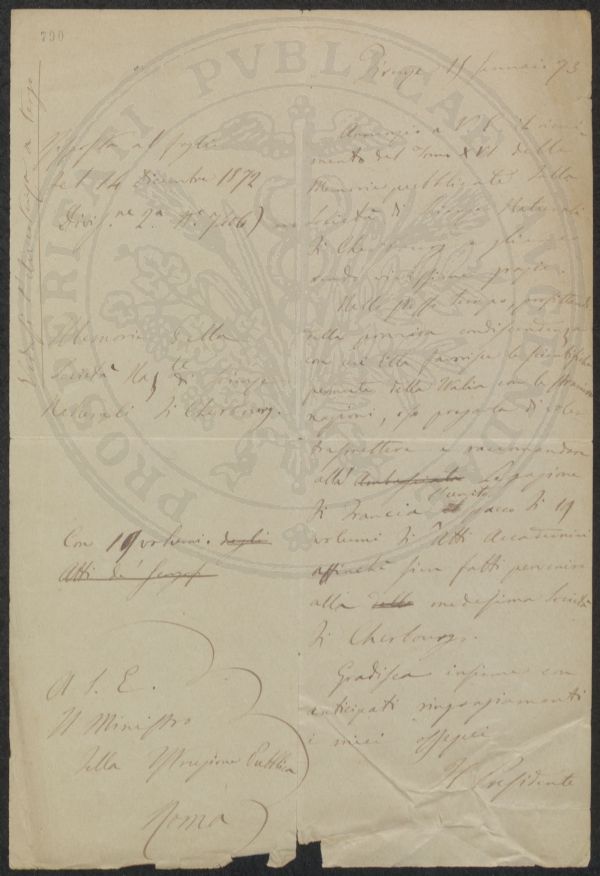 790
Firenze 15 Gennaio 73
Risposta al foglio
del 14 Dicembre 1872
Divis.ne 2a N.o 7206)
Memorie della
Società di Scienze
Naturali di Cherbourg.
Con 19 volumi degli
Atti de'
A S. E.
Il Ministro
della Istruzione Pubblica
Roma
Annunzio a V. E. il ricevi
mento del Tomo XVI delle
Memorie pubblicate dalla
Società di Scienze Naturali
di Cherbourg e gliene
rendo vivissime grazie.
Nello stesso tempo, profittando
della premura condiscendenza
con cui Ella favorisce le scientifiche
della Italia con le straniere
nazioni, oso pregarla di voler
trasmettere e raccomandare
alla Ambasciata Legazione
di Francia l'unito il pacco di 19
volumi di Atti Accademici
affinchè sien fatti pervenire
alla della medesima Società
di Cherbourg.
Gradisca insieme con
anticipati ringraziamenti
i miei ossequi
Il Presidente
PROSPERITATI PVBLICAE AVGENDAE